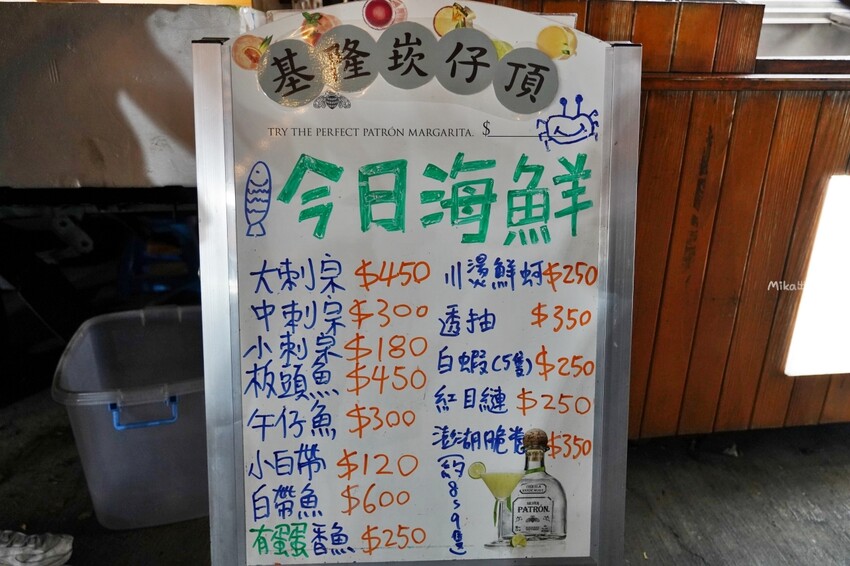 基隆崁仔頂
TRY THE PERFECT PATRÓN MARGARITA. $
今日海鮮
大刺宗 $450
中刺宗 $300
小刺宗 $180
板頭魚 $450
午仔魚 $300
小白帶 $120
白帶魚 $600
有蛋蛋香魚 $250
川燙鮮蚵 $250
透抽 $350
白蝦(5隻) $250
紅目鰱 $250
澎湖脆卷 $350
(約8~9隻)
PATRÓN
Mika出